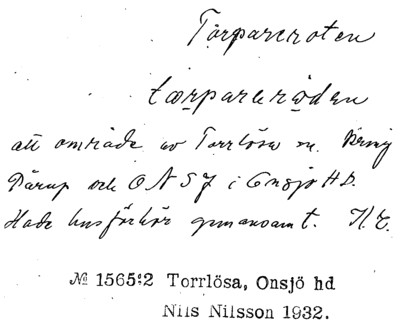 Torpareroten
tærpareröden
ett område av Torrlösa sn. kring
Pårup och ONSJ i Onsjö HD.
Hade husförhör gemensamt. N. E.
№ 1565:2 Torrlösa, Onsjö hd
Nils Nilsson 1932.